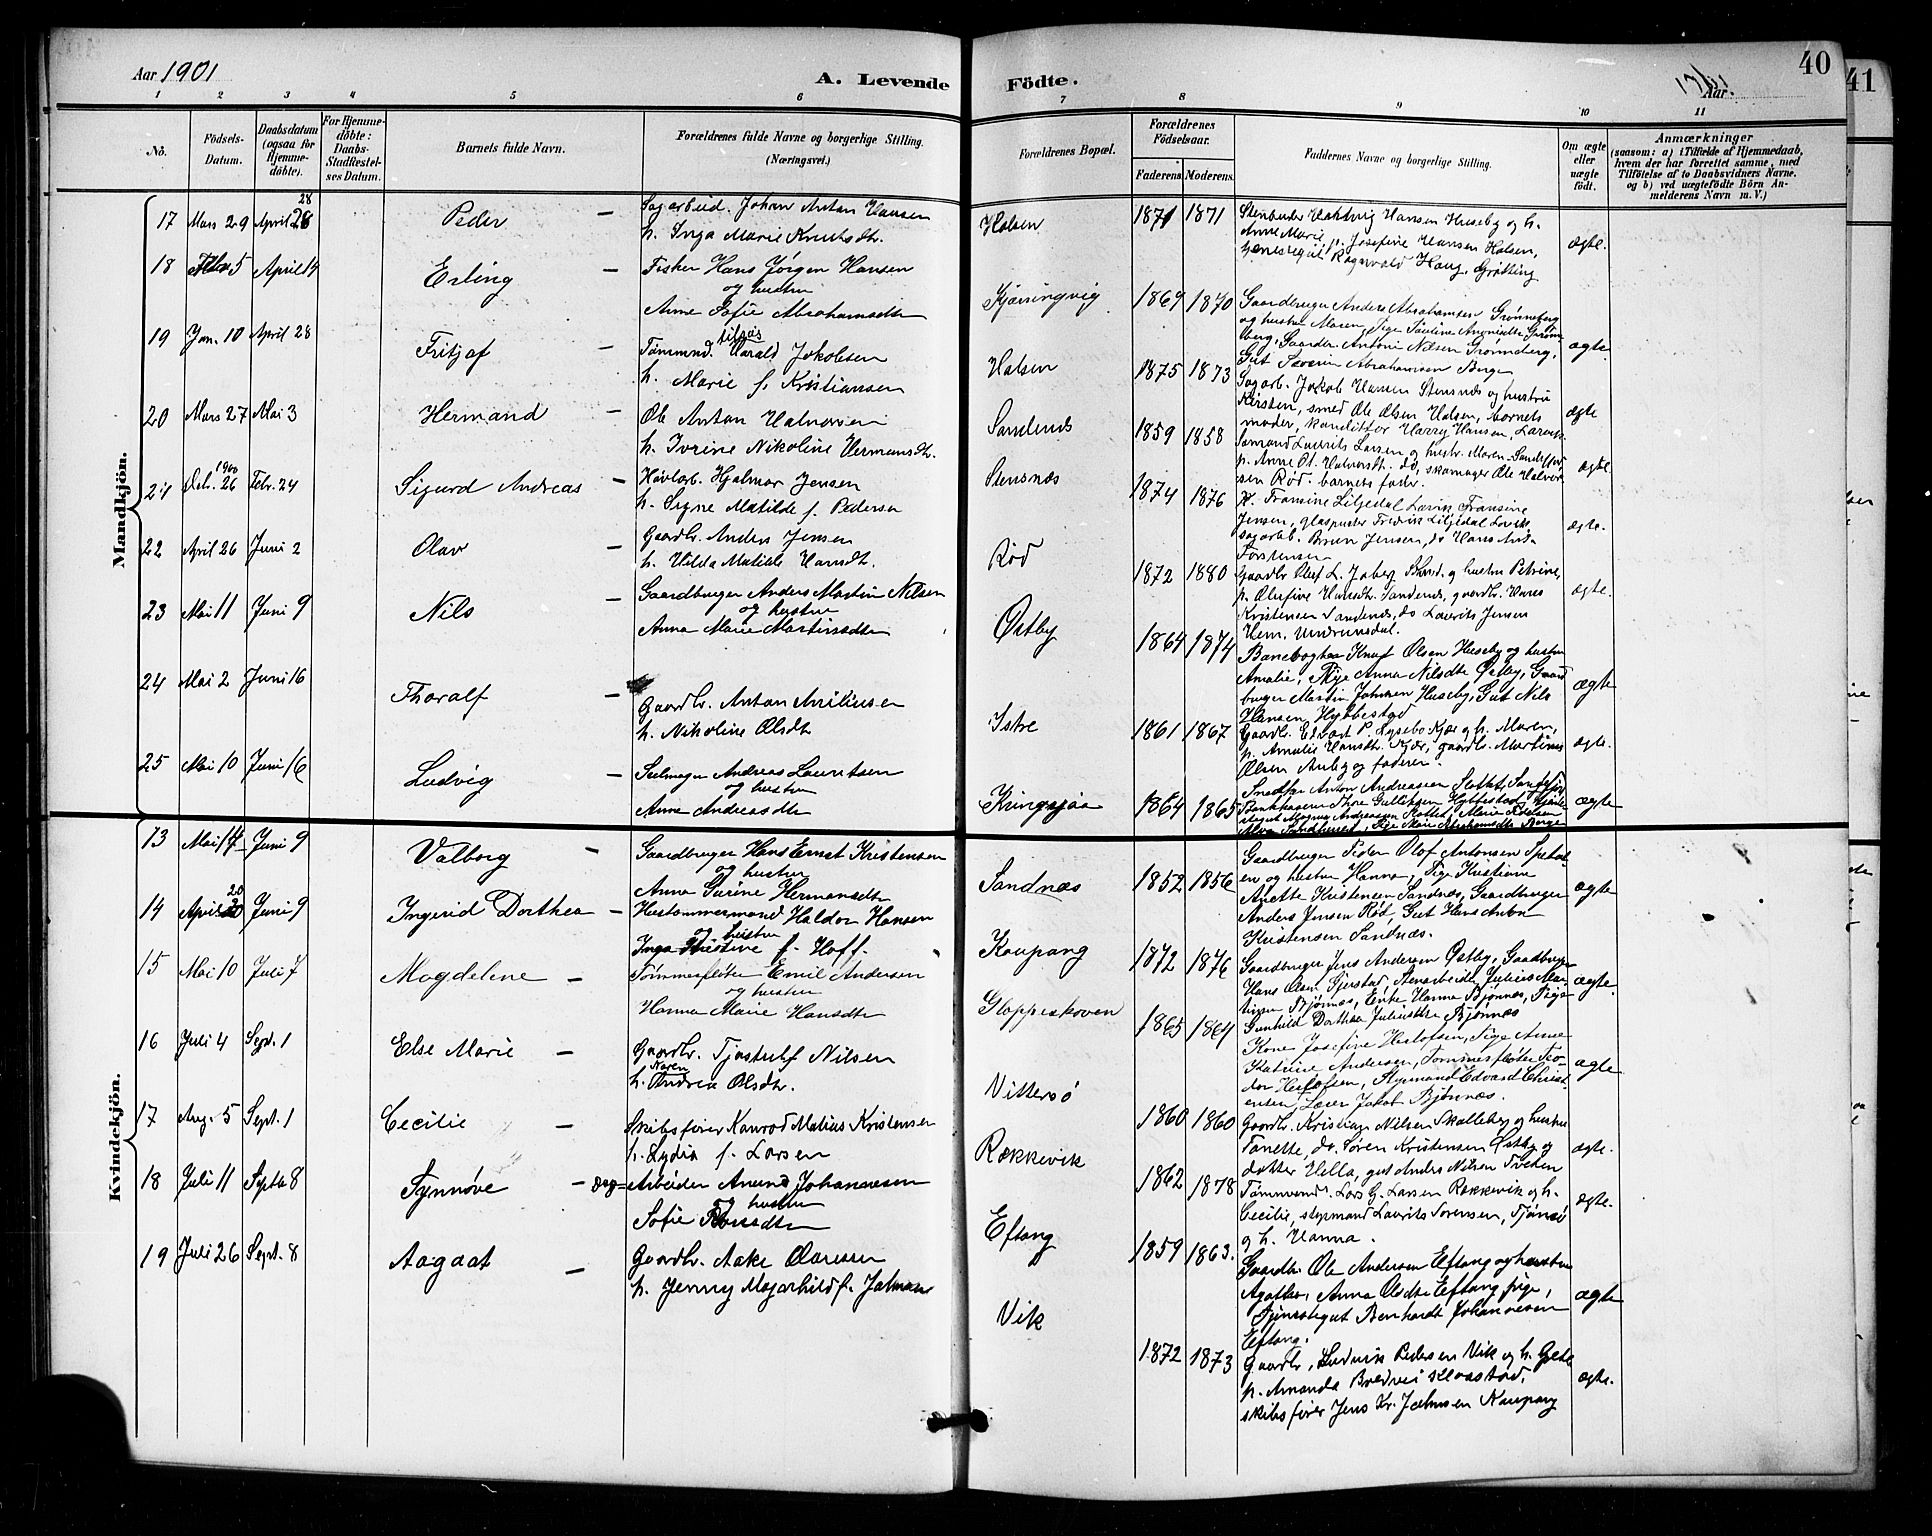 Aar 1901
A. Levende Födte.
40
41
Aar
1 2 3 4 5 6 7 8 9 10 11
No.
Födsels-Datum.
Daabsdatum (ogsaa for Hjemmedöbte).
For Hjemmedöbte: Daabs-Stadfestelses Datum.
Barnets fulde Navn.
Forældrenes fulde Navne og borgerlige Stilling. (Næringsvei.)
Forældrenes Bopæl.
Forældrenes Födselsaar.
Faderens. Moderens.
Faddernes Navne og borgerlige Stilling.
Om ægte eller uægte födt.
Anmærkninger
(saasom: a) i Tilfælde af Hjemmedaab, hvem der har forrettet samme, med Tilföielse af to Daabsvidners Navne, og b) ved uægtefödte Börn Anmelderens Navn m. V.)
Mandkjön.
17 Mars 29 April 28 28 Peder –
Sagarbeid. Johan Anton Hansen
h. Inga Marie Knutsdtr.
Halsen 1871 1871
Hansen Huseby og h.
Anne Marie, p. Josefine Hansen Halsen,
Ragnvald Haug, Grøtting
ægte.
18 Febr 5 April 14 Erling –
Fisker Hans Jørgen Hansen
og hustru
Anne Sofie Abrahamsdtr
Kjærringvig 1869 1870
Gaardbruger Anders Abrahamsen Grønneberg
og hustru Maren, Pige Pauline
berg, Gaardbr. Antoni Nilsen Grønneberg,
Gut Severin Abrahamsen Berge
ægte.
19 Jan. 10 April 28 Fritjof –
Tømmrmd. Harald Jakobsen
h. Marie f. Kristiansen
Halsen 1875 1873
Sagarb. Jakob Hansen Stensnæs og hustru
Kirsten, smed Ole Olsen Halsen, barnets
moder, konditor Harry Hansen, Larvik.
ægte
20 Mars 27 Mai 3 Hermand –
Ole Anton Halvorsen
h. Ivrine Nikoline Hermansdtr.
Sandnæs 1859 1858
Sømand Laurits Larsen og hustr. Maren Sandefjord
p. Anne Ot. Halvorsdtr. do, skomager Ole Halvorsen
Rød. barnets fader.
ægte.
21 Dcb. 26 1900 Febr. 24 Sigurd Andreas –
Høvlarb. Hjalmar Jensen
h. Signe Matilde f. Pedersen
Stensnæs 1874 1876
Fransine Liljedal Larvik Fransine
Jensen, glaspuster Fredrik Liljedal Larvik,
sagarb. Brun Jensen, do Hans And.
Torstensen
ægte.
22 April 26 Juni 2 Olav –
Gaardbr. Anders Jensen
h. Hilda Matilde Hansdtr.
Rød 1872 1880
Gaardbr Oluf L. Joberg og hustru Petrine,
p. Olefine Hansdtr. Sandnæs, gaardbr. Hans
Kristensen Sandnæs, do Laurits Jensen
Hem, Undrumsdal.
ægte.
23 Mai 11 Juni 9 Nils
Gaardbruger Anders Martin Nilsen
og hustru
Anna Marie Martinsdtr
Østby 1864 1874
Banevogter Knut Olsen Huseby og hustru
Amalie, Pige Anna Nilsdtr Østby, Gaard
bruger Martin Johnsen Huseby, Gut Nils
Hansen Hybbestad
ægte
24 Mai 2 Juni 16 Thoralf –
Gaardbr. Anton Anikiusen
h. Nikoline Olsdtr
Istre 1861 1867
Gaardbr. Edvart P. Lysebo Kjær og h. Maren,
p. Amalie Hansdtr. Kjær, gaardbr. Martinus
Olsen Auby og faderen.
ægte.
25 Mai 10 Juni 16 Ludvig –
Seilmager Andreas Lauritsen
og hustru
Anne Andreasdtr
Kringsjaa 1864 1865
Anton Andreassen Slottet, Sandefjord
Thore Gulliksen Hybbestad,
Andreassen Slottet, Marie
Pige Marie Abrahamsdtr Berge
ægte
Kvindekjön.
13 Mai 14 Juni 9 Valborg –
Gaardbruger Hans Ernst Kristensen
og hustru
Anna Gurine Hermansdtr
Sandnæs 1852 1856
Gaardbruger Peder Olof Antonsen
en og hustru Hanna, Pige Kristiane
Anette Kristensen Sandnæs, Gaardbruger
Anders Jensen Rød, Gut Hans Anton
Kristensen Sandnæs.
ægte
14 April 20 20 Juni 9 Ingerid Dorthea –
Hustømmermand Haldor Hansen
og hustru
Inga Kristine f. Hoff.
Kaupang 1872 1876
Gaardbruger Jens Andersen Østby, Gaardbruger
Hans Olsen Gjerstad, Stenarbeider Julius Mar
tinsen Bjønnes, Enke Hanna Bjønnes, Pige
Gunhild Dorthea Juliusdtr Bjønnes
ægte.
15 Mai 10 Juli 7 Magdelene –
Tømmerfløter Emil Andersen
og hustru
Hanna Marie Hansdtr
Gloppeskoven 1865 1864
Kone Josefine Herlofsen, Pige Anne
Katrine Andersen, Tømmerfløter Teo
dor Herlofsen, Styrmand Edvard Christ
ensen, Læser Jakob Bjønnæs.
ægte
16 Juli 4 Sept. 1 Else Marie –
Gaardbr. Tjøstulf Nilsen
h. Karen Andrea Olsdtr.
Vittersø 1860 1860
Gaardbr. Kristian Nilsen Skalleberg og hustru
Tanette, do. Søren Kristensen Østby og
datter Hella, gut Anders Nilsen Tveten
ægte.
17 Aug. 5 Sept. 1 Cecilie –
Skibsfører Konrad Matius Kristensen
h. Lydia f. Larsen
Rækkevik 1862 1878
Tømmrmd. Lars G. Larsen Rækkevik og h.
Cecilie, styrmand Laurits Sørensen, Tjønsø
og h. Hanna.
ægte.
18 Juli 11 Septb 8 Synnøve –
Dag= Arbeider Anund Johannesen
og hustru
Sofie
Eftang 1859 1863.
Gaardbr. Ole Andersen Eftang og hustru
Agathe, Anna Olsdtr Eftang pige,
Tjenestegut Bernhardt Johannesen
Eftang.
ægte
19 Juli 26 Sept. 8 Aagaat –
Gaardbr. Aake Claressen
h. Jenny Majorhild f. Jahnsen
Vik 1872 1873
Gaardbr. Ludvik Pedersen Vik og h. Grete
p. Amanda Bredvei Klaastad,
skibsfører Jens Kr. Jahnsen Kaupang
ægte.